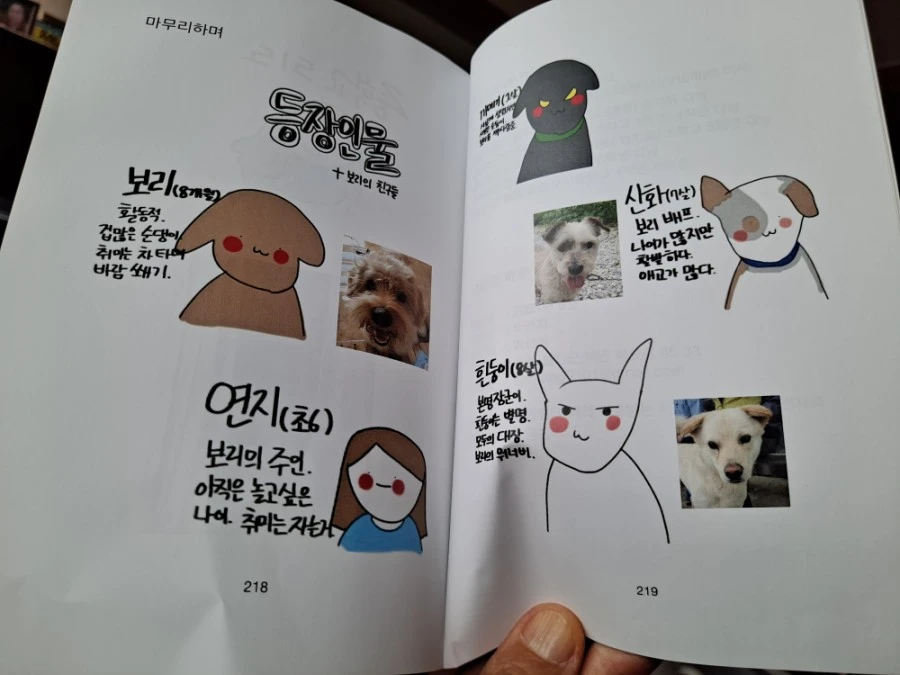 마무리하며
등장인물
+ 보리의 친구들
보리(8개월)
활동적.
겁많은 순댕이
취미는 차 타며
바람 쐐기.
연지(초6)
보리의 주인.
아직은 놀고싶은
나이. 취미는 자는거
218
산화(7살)
보리 베프.
나이가 많지만
활발하다.
애교가 많다.
흰둥이(8살)
본명 장군이.
흰둥이는 별명.
모두의 대장.
보리의 워너비.
219